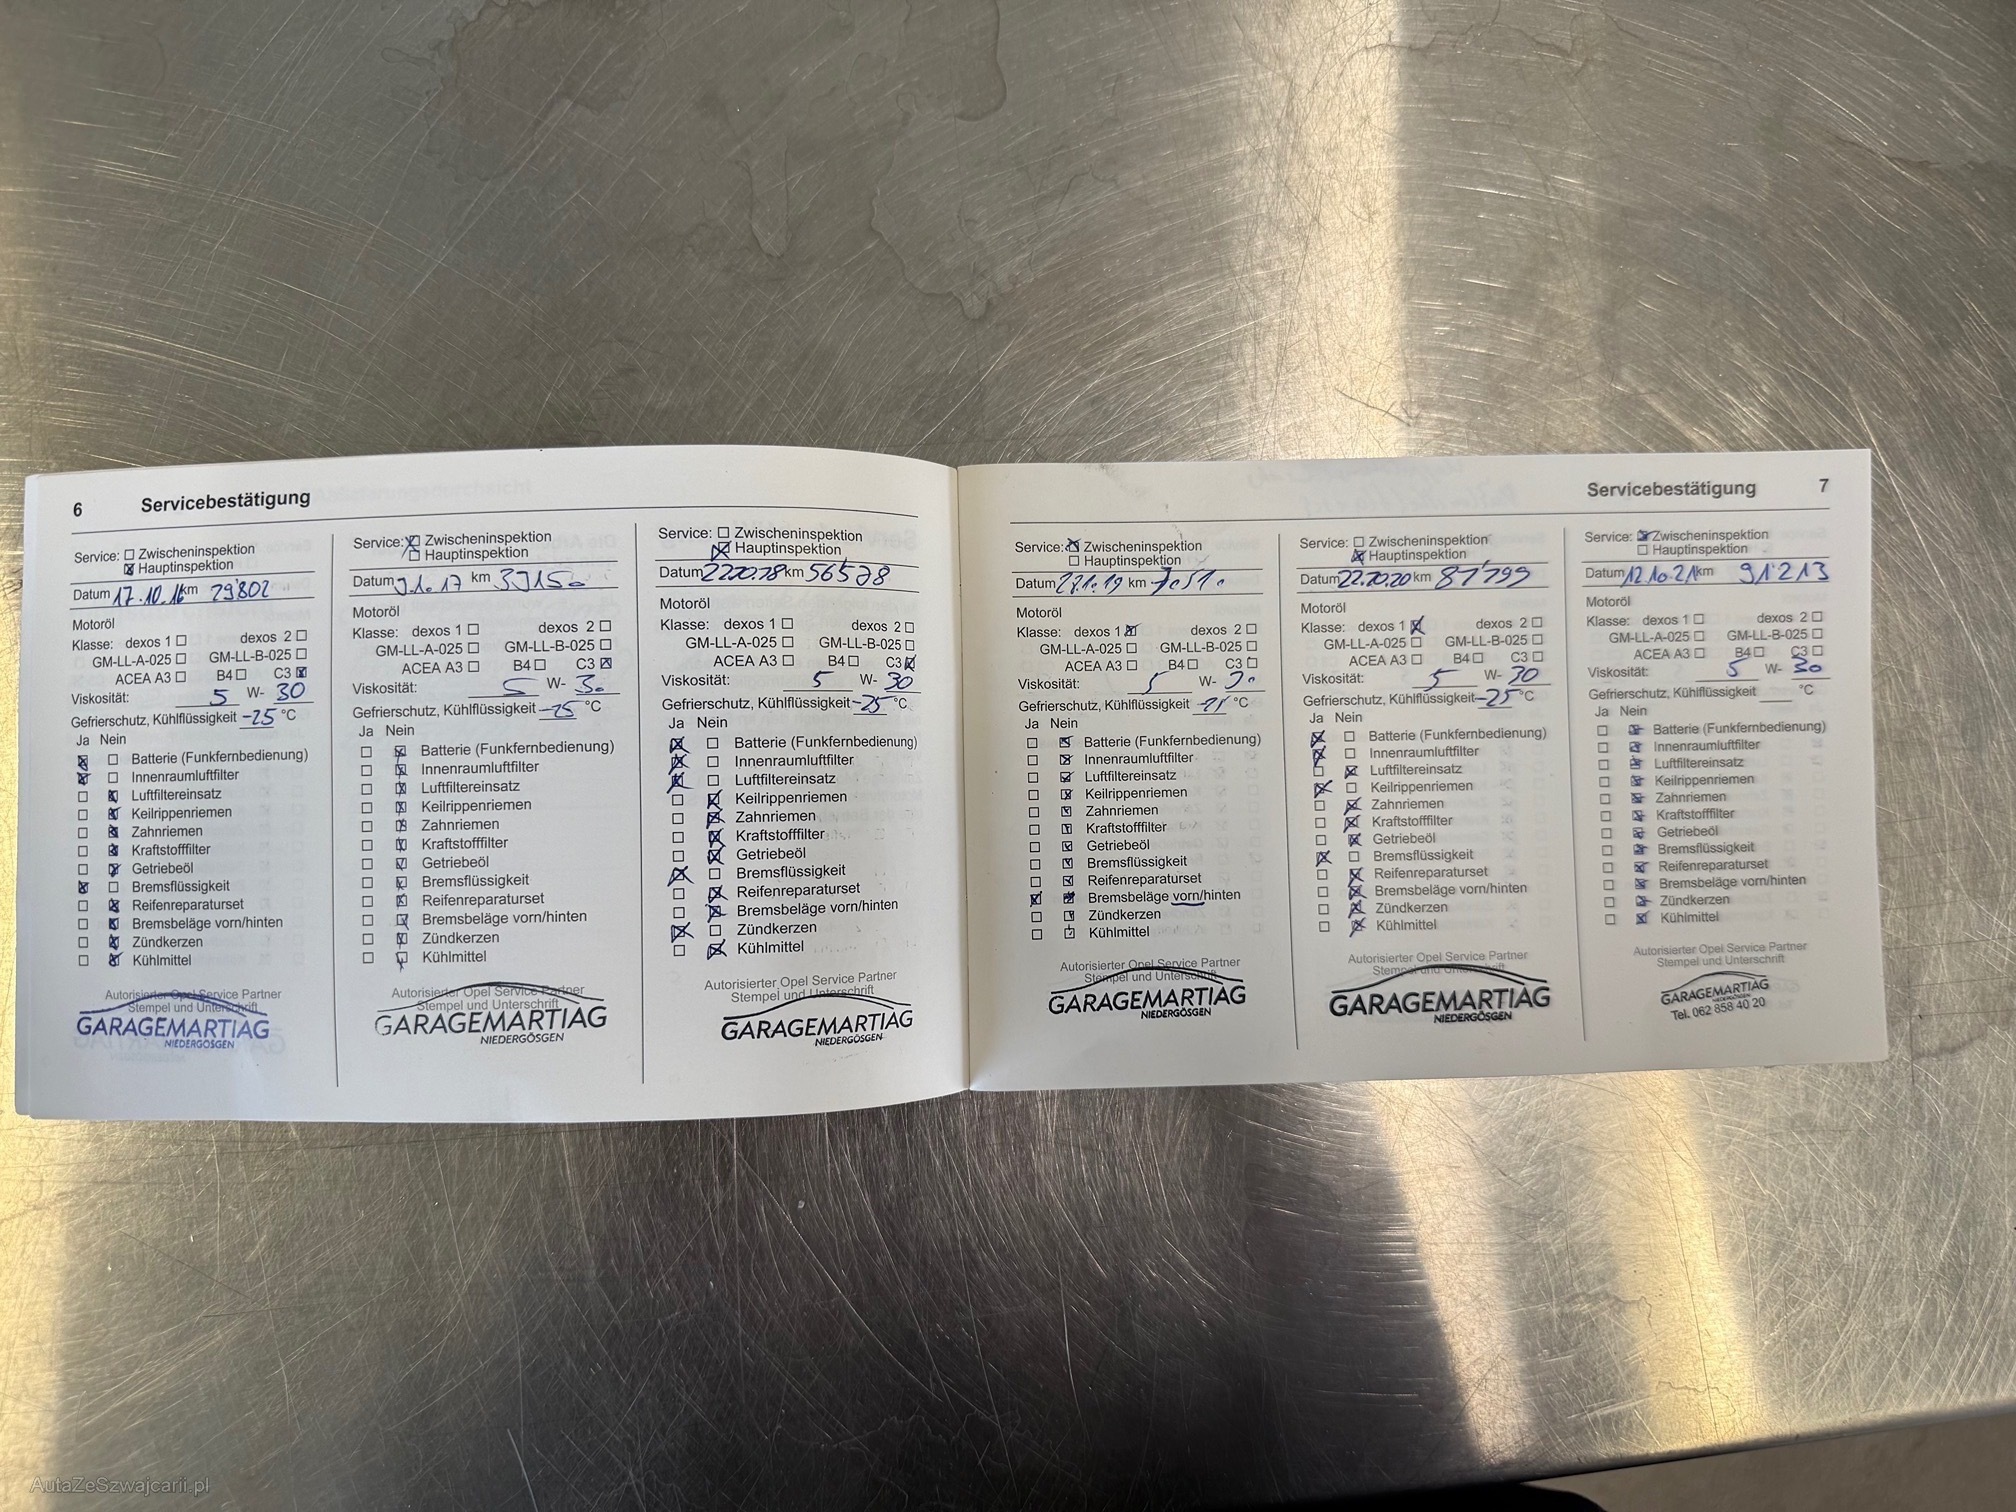 6 Servicebestätigung
Service: ☐ Zwischeninspektion
☒ Hauptinspektion
Datum 17.10.16 km 29'802
Motoröl
Klasse: dexos 1 ☐ dexos 2 ☐
GM-LL-A-025 ☐ GM-LL-B-025 ☐
ACEA A3 ☐ B4 ☐ C3 ☒
Viskosität: 5 W- 30
Gefrierschutz, Kühlflüssigkeit -25 °C
Ja Nein
☒ ☐ Batterie (Funkfernbedienung)
☒ ☐ Innenraumluftfilter
☐ ☒ Luftfiltereinsatz
☐ ☒ Keilrippenriemen
☐ ☒ Zahnriemen
☐ ☒ Kraftstofffilter
☐ ☒ Getriebeöl
☒ ☐ Bremsflüssigkeit
☐ ☒ Reifenreparaturset
☐ ☒ Bremsbeläge vorn/hinten
☐ ☒ Zündkerzen
☐ ☒ Kühlmittel
Autorisierter Opel Service Partner
Stempel und Unterschrift
GARAGEMARTIAG
NIEDERGÖSGEN
Service: ☒ Zwischeninspektion
☐ Hauptinspektion
Datum km
Motoröl
Klasse: dexos 1 ☐ dexos 2 ☐
GM-LL-A-025 ☐ GM-LL-B-025 ☐
ACEA A3 ☐ B4 ☐ C3 ☒
Viskosität: 5 W- 30
Gefrierschutz, Kühlflüssigkeit -25 °C
Ja Nein
☐ ☒ Batterie (Funkfernbedienung)
☐ ☒ Innenraumluftfilter
☐ ☒ Luftfiltereinsatz
☐ ☒ Keilrippenriemen
☐ ☒ Zahnriemen
☐ ☒ Kraftstofffilter
☐ ☒ Getriebeöl
☐ ☒ Bremsflüssigkeit
☐ ☒ Reifenreparaturset
☐ ☒ Bremsbeläge vorn/hinten
☐ ☒ Zündkerzen
☐ ☒ Kühlmittel
Autorisierter Opel Service Partner
Stempel und Unterschrift
GARAGEMARTIAG
NIEDERGÖSGEN
Service: ☐ Zwischeninspektion
☒ Hauptinspektion
Datum 22.10.18 km 56'528
Motoröl
Klasse: dexos 1 ☐ dexos 2 ☐
GM-LL-A-025 ☐ GM-LL-B-025 ☐
ACEA A3 ☐ B4 ☐ C3 ☒
Viskosität: 5 W- 30
Gefrierschutz, Kühlflüssigkeit -25 °C
Ja Nein
☒ ☐ Batterie (Funkfernbedienung)
☒ ☐ Innenraumluftfilter
☒ ☐ Luftfiltereinsatz
☐ ☒ Keilrippenriemen
☐ ☒ Zahnriemen
☐ ☒ Kraftstofffilter
☐ ☒ Getriebeöl
☒ ☐ Bremsflüssigkeit
☐ ☒ Reifenreparaturset
☐ ☒ Bremsbeläge vorn/hinten
☒ ☐ Zündkerzen
☐ ☒ Kühlmittel
Autorisierter Opel Service Partner
Stempel und Unterschrift
GARAGEMARTIAG
NIEDERGÖSGEN
Servicebestätigung 7
Service: ☒ Zwischeninspektion
☐ Hauptinspektion
Datum km
Motoröl
Klasse: dexos 1 ☒ dexos 2 ☐
GM-LL-A-025 ☐ GM-LL-B-025 ☐
ACEA A3 ☐ B4 ☐ C3 ☐
Viskosität: 5 W- 30
Gefrierschutz, Kühlflüssigkeit °C
Ja Nein
☐ ☒ Batterie (Funkfernbedienung)
☐ ☒ Innenraumluftfilter
☐ ☒ Luftfiltereinsatz
☐ ☒ Keilrippenriemen
☐ ☒ Zahnriemen
☐ ☒ Kraftstofffilter
☐ ☒ Getriebeöl
☐ ☒ Bremsflüssigkeit
☐ ☒ Reifenreparaturset
☒ ☒ Bremsbeläge vorn/hinten
☐ ☒ Zündkerzen
☐ ☒ Kühlmittel
Autorisierter Opel Service Partner
Stempel und Unterschrift
GARAGEMARTIAG
NIEDERGÖSGEN
Service: ☐ Zwischeninspektion
☒ Hauptinspektion
Datum 22.10.20 km 81'799
Motoröl
Klasse: dexos 1 ☒ dexos 2 ☐
GM-LL-A-025 ☐ GM-LL-B-025 ☐
ACEA A3 ☐ B4 ☐ C3 ☐
Viskosität: 5 W- 30
Gefrierschutz, Kühlflüssigkeit -25 °C
Ja Nein
☒ ☐ Batterie (Funkfernbedienung)
☒ ☐ Innenraumluftfilter
☐ ☒ Luftfiltereinsatz
☒ ☐ Keilrippenriemen
☐ ☒ Zahnriemen
☐ ☒ Kraftstofffilter
☐ ☒ Getriebeöl
☒ ☐ Bremsflüssigkeit
☐ ☒ Reifenreparaturset
☐ ☒ Bremsbeläge vorn/hinten
☐ ☒ Zündkerzen
☐ ☒ Kühlmittel
Autorisierter Opel Service Partner
Stempel und Unterschrift
GARAGEMARTIAG
NIEDERGÖSGEN
Service: ☒ Zwischeninspektion
☐ Hauptinspektion
Datum 12.10.21 km 91'213
Motoröl
Klasse: dexos 1 ☐ dexos 2 ☐
GM-LL-A-025 ☐ GM-LL-B-025 ☐
ACEA A3 ☐ B4 ☐ C3 ☐
Viskosität: 5 W- 30
Gefrierschutz, Kühlflüssigkeit °C
Ja Nein
☐ ☒ Batterie (Funkfernbedienung)
☐ ☒ Innenraumluftfilter
☐ ☒ Luftfiltereinsatz
☐ ☒ Keilrippenriemen
☐ ☒ Zahnriemen
☐ ☒ Kraftstofffilter
☐ ☒ Getriebeöl
☐ ☒ Bremsflüssigkeit
☐ ☒ Reifenreparaturset
☐ ☒ Bremsbeläge vorn/hinten
☐ ☒ Zündkerzen
☐ ☒ Kühlmittel
Autorisierter Opel Service Partner
Stempel und Unterschrift
GARAGEMARTIAG
NIEDERGÖSGEN
Tel. 062 858 40 20
AutaZeSzwajcarii.pl